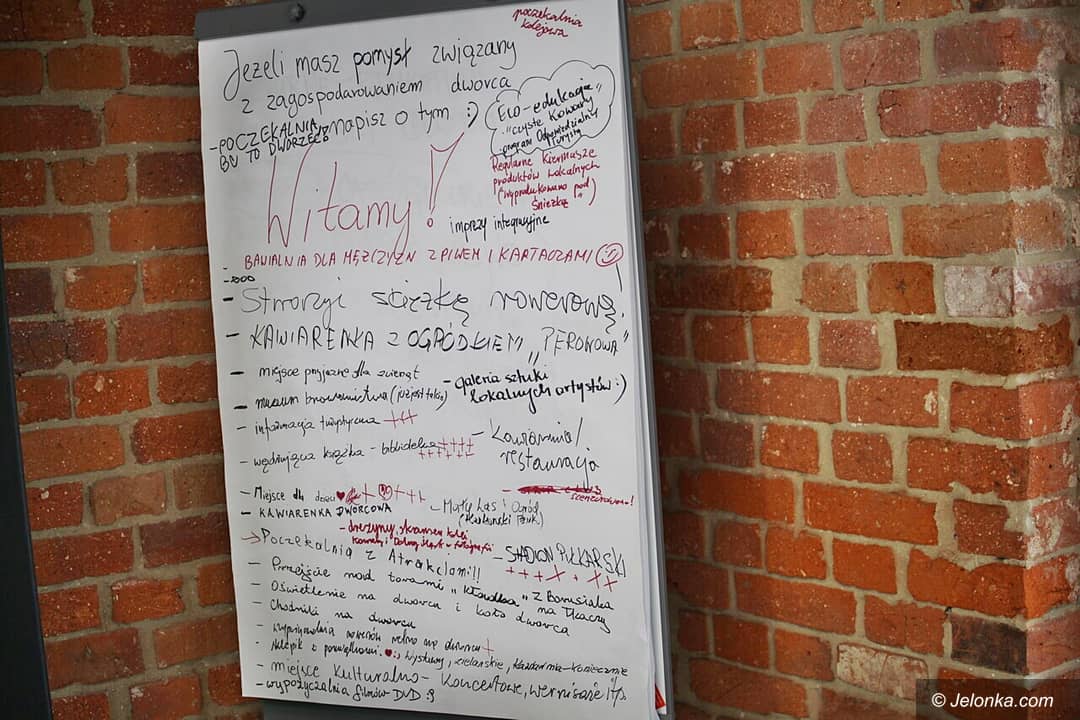 poczekalnia
kolejowa
Jeżeli masz pomysł związany
z zagospodarowaniem dworca
napisz o tym :)
-POCZEKALNIA,
BO TO DWORZEC
Eco-edukacja
"czyste Kowary"
program Odpowiedzialny
Turysta
Regularne Kiermasze
produktów lokalnych
(wyprodukowano pod
Śnieżką)
Witamy!
imprezy integracyjne
- BAWIALNIA DLA MĘŻCZYZN Z PIWEM I KARTACZAMI
- Stworzyć ścieżkę rowerową
- KAWIARENKA Z OGRÓDKIEM „PERONOWA"
- miejsce przyjazne dla zwierząt
- galeria sztuki
lokalnych artystów :)
- muzeum browarnictwa (już jest takie)
- informacja turystyczna +++
- wędrująca książka - biblioteka
- Kawiarnia/
restauracja
- Miejsce dla dzieci
- KAWIARENKA DWORCOWA
- Mały Las i Ogród
- drezyny, skansen kolei
Kowary i Dolny Śląsk w fotografii
→ Poczekalnia z Atrakcjami!!
- STADION PIŁKARSKI
- Przejście nad torami „Kładka" z Bonusiaka na Tkaczy
- Oświetlenie na dworcu i koło dworca
- Chodniki na dworcu
- wypożyczalnia rowerów +
- sklepik z pamiątkami
- miejsce kulturalno- koncertowe, wernisaże itp
- wypożyczalnia filmów DVD :)
© Jelonka.com